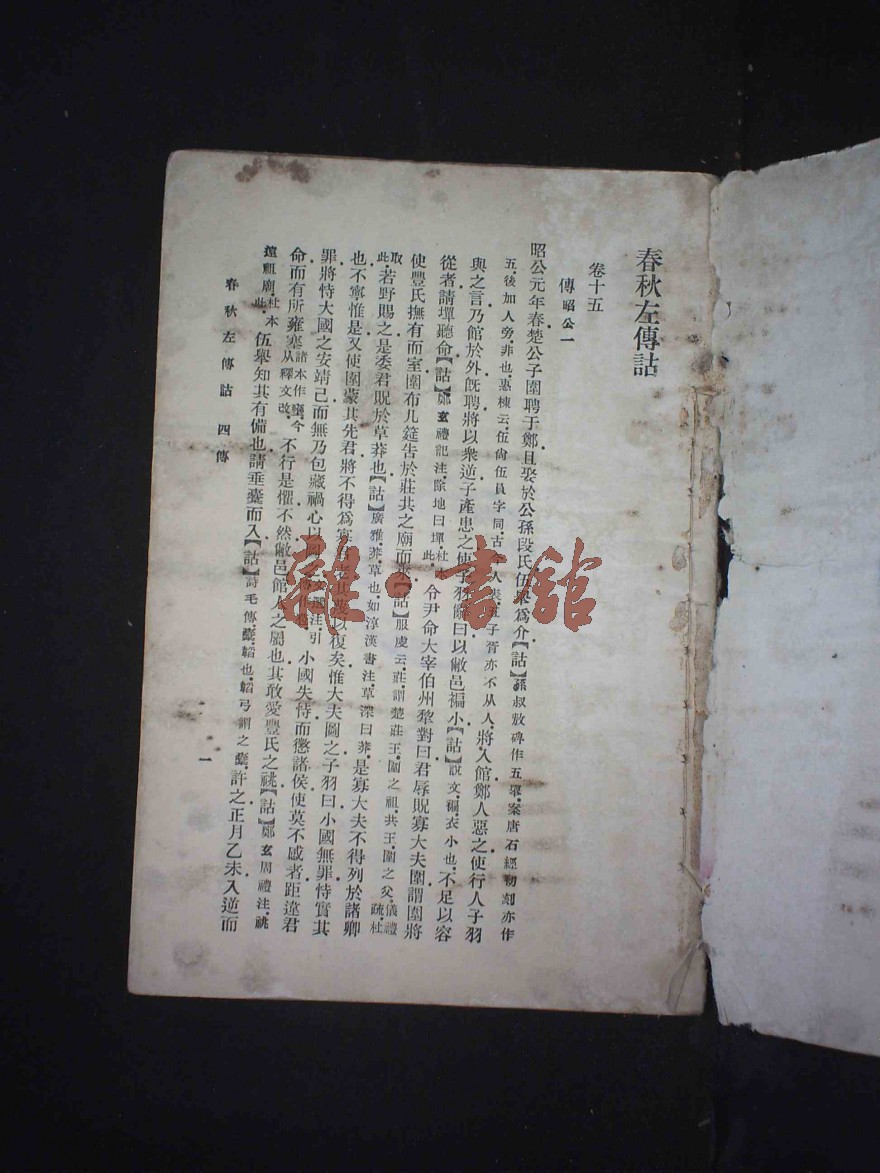 春秋左傳詁
卷十五
傳昭公一
昭公元年春楚公子圍聘于鄭且娶於公孫段氏伍舉爲介【詁】孫叔敖碑作五舉案唐石經初刻亦作
五後加人旁非也惠棟云伍尙伍員字同古今人表五子胥亦不从人將入館鄭人惡之使行人子羽
與之言乃館於外旣聘將以衆逆子產患之使子羽辭曰以敝邑褊小【詁】說文褊衣小也不足以容
從者請墠聽命【詁】鄭玄禮記注除地曰墠杜本此令尹命大宰伯州犂對曰君辱貺寡大夫圍謂圍將
使豐氏撫有而室圍布几筵告於莊共之廟而來【詁】服虔云莊謂楚莊王圍之祖共王圍之父儀禮疏杜
取此若野賜之是委君貺於草莽也【詁】廣雅莽草也如淳漢書注草深曰莽是寡大夫不得列於諸卿
也不寧惟是又使圍蒙其先君將不得爲寡君老其蔑以復矣惟大夫圖之子羽曰小國無罪恃實其
罪將恃大國之安靖己而無乃包藏禍心以圖之文選注引小國失恃而懲諸侯使莫不慼者距違君
命而有所雍塞諸本作壅今从釋文改不行是懼不然敝邑館人之屬也其敢愛豐氏之祧【詁】鄭玄周禮注祧
遠祖廟杜本此伍舉知其有備也請垂櫜而入【詁】詩毛傳櫜韜也韜弓謂之櫜許之正月乙未入逆而
春秋左傳詁 四傳
一
雜·書館